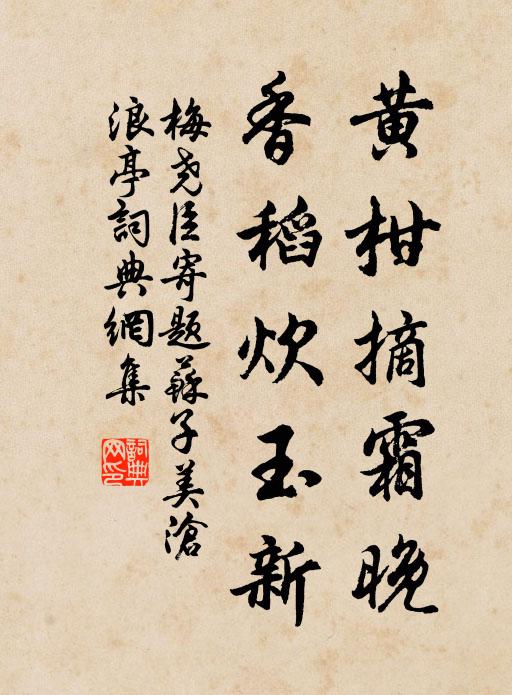 黄柑摘霜晚
香稻炊玉新
梅尧臣寄题蘇子美滄
浪亭詞典網集
詞典网印